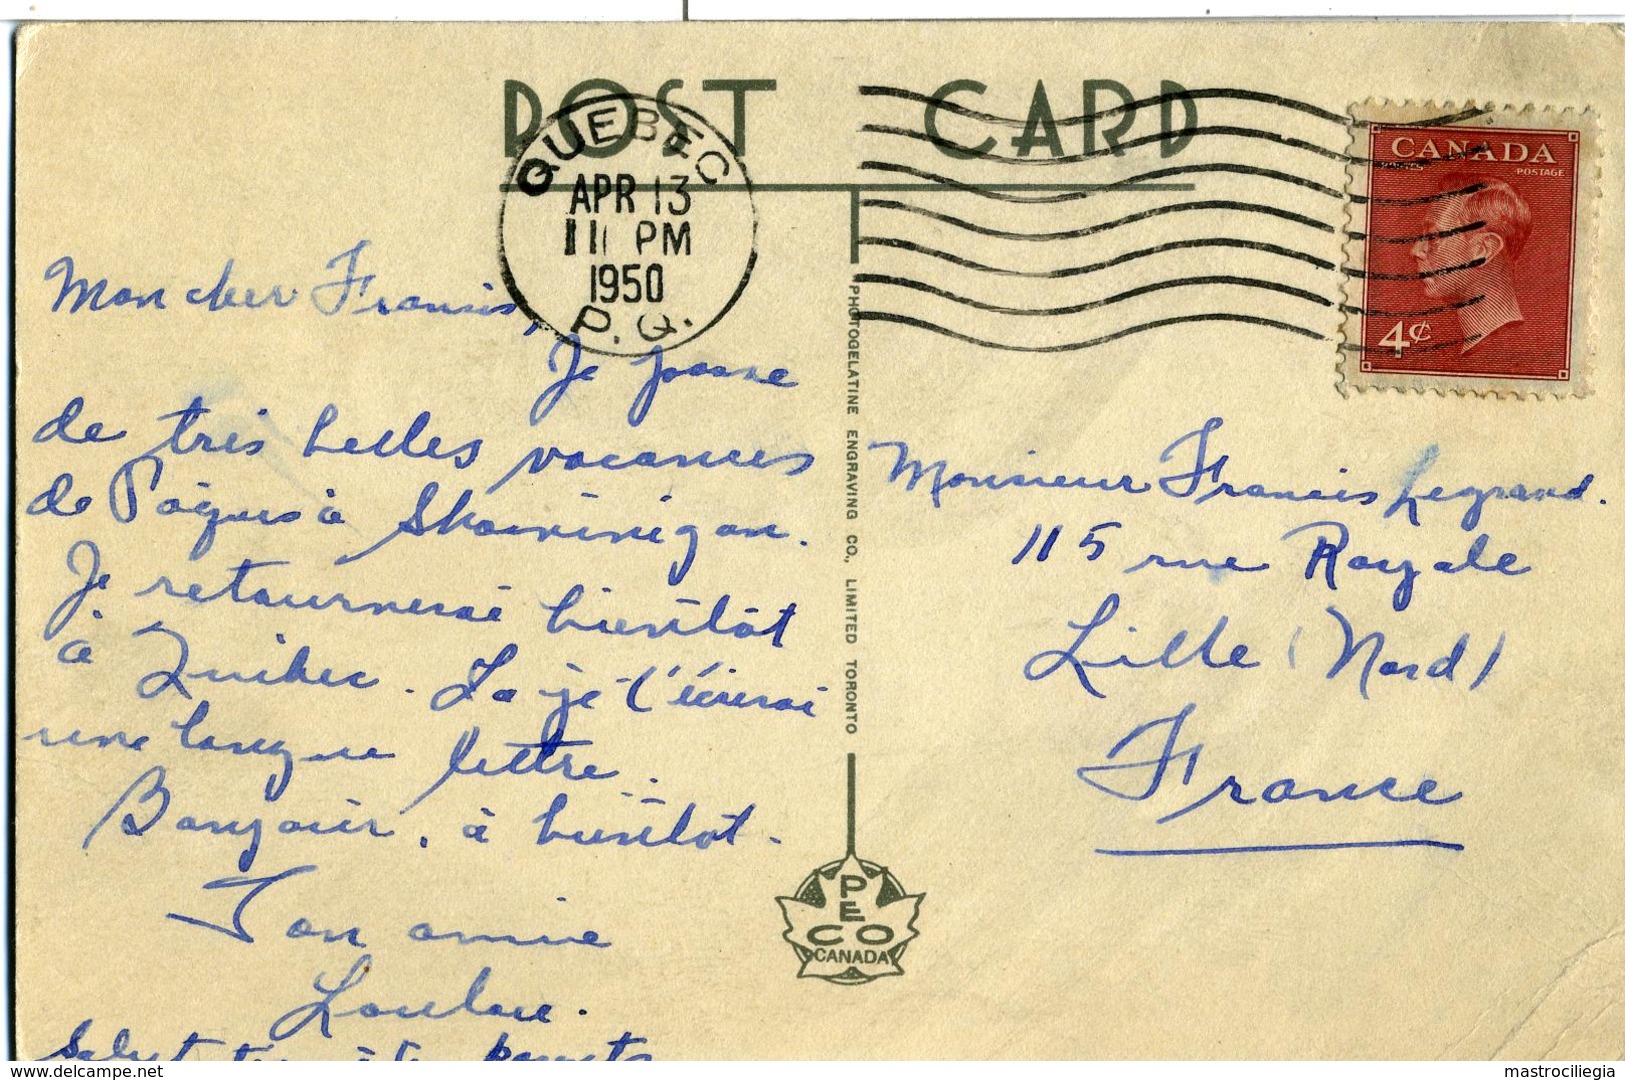 POST CARD
QUEBEC
APR 13
11 PM
1950
P.Q.
CANADA
POSTAGE
4¢
Mon cher Francis,
Je passe
de très belles vacances
de Pâques à Shawinigan.
Je retournerai bientôt
à Québec. Là je t'écrirai
une longue lettre.
Bonjour, à bientôt.
Ton amie
Salut à parents
PHOTOGELATINE ENGRAVING CO., LIMITED TORONTO
PECO
CANADA
Monsieur Francis Legrand.
115 rue Royale
Lille (Nord)
France
delcampe.net
mastrociliegia